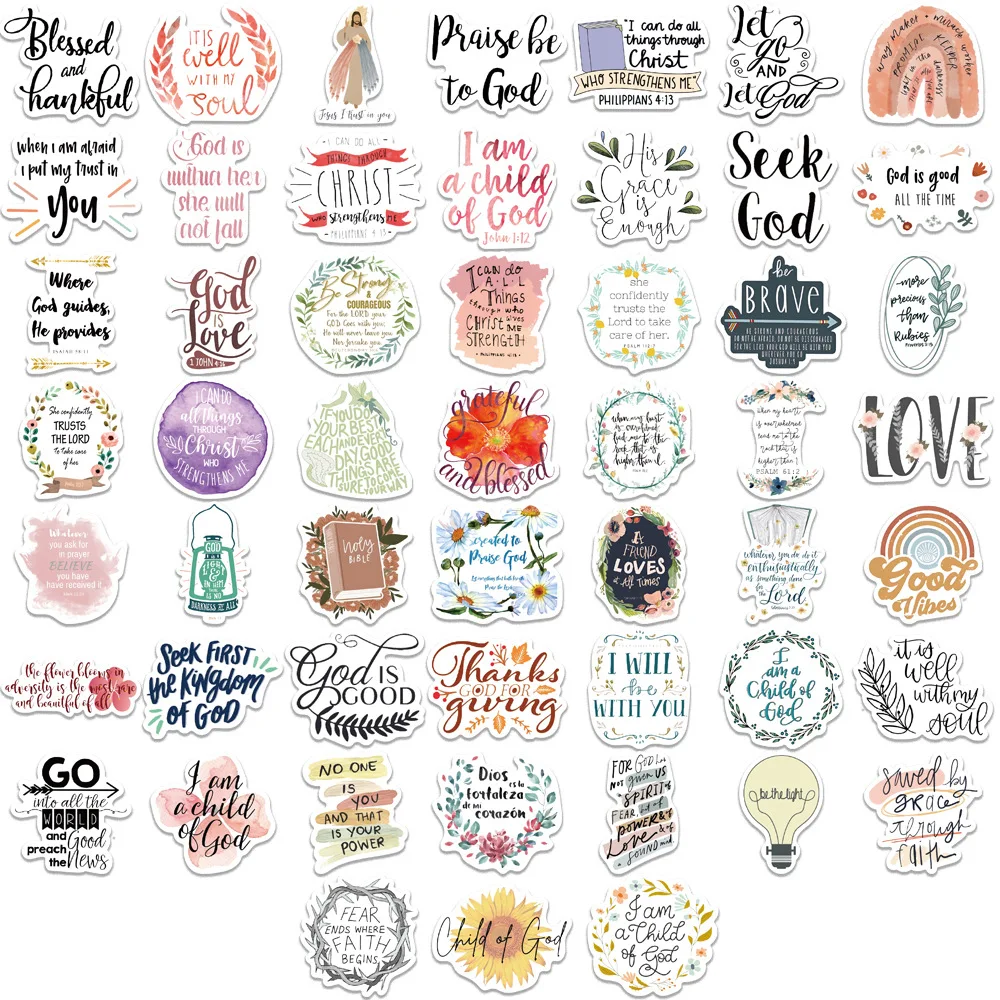 Blessed
and
thankful
IT IS
well
WITH MY
soul
Jesus I trust in you
Praise be
to God
"I can do all
things through
Christ
WHO STRENGTHENS ME."
PHILIPPIANS 4:13
Let
go
AND
Let God
way maker • miracle worker
PROMISE KEEPER
light in the darkness
When I am afraid
I put my trust in
You
God is
within her
she will
not fall
I CAN DO ALL
THINGS THROUGH
CHRIST
WHO strengthens ME
PHILIPPIANS 4:13
I am
a child
of God
John 1:12
His
Grace
is
Enough
Seek
God
God is good
ALL THE TIME
Where
God guides,
He provides
ISAIAH 58:11
God
IS
Love
1 JOHN 4:16
Be Strong
&
COURAGEOUS
For the LORD your
GOD Goes with you;
He will never leave you
Nor forsake you
I CAN DO
A·L·L
Things
through who
CHRIST gives ME
STRENGTH
she
confidently
trusts the
Lord to take
care of her.
PSALM 112:7
be
BRAVE
BE STRONG AND COURAGEOUS
DO NOT BE AFRAID; DO NOT BE DISCOURAGED
FOR THE LORD YOUR GOD WILL BE WITH YOU
WHEREVER YOU GO
JOSHUA 1:9
more
precious
than
Rubies
She confidently
TRUSTS
THE LORD
to take care
of her
I CAN DO
all things
THROUGH
Christ
WHO
STRENGTHENS ME
grateful
and blessed
when my heart
is overwhelmed
lead me to the
rock that is
higher than I.
when my heart
is overwhelmed
lead me to the
rock that is
higher than I
PSALM 61:2
LOVE
Whatever
you ask for
in prayer
BELIEVE
you have
have received it
GOD
IS
LIGHT
&
IN HIM
THERE IS NO
DARKNESS AT ALL
HOLY
BIBLE
created to
Praise God
Let everything that hath breath
Praise the Lord
A
FRIEND
LOVES
at All Times
whatever you do do it
enthusiastically
as something done
for the Lord
Good
Vibes
the flower blooms in
adversity is the most rare
and beautiful of all
SEEK FIRST
the KINGDOM
OF GOD
God IS
GOOD
Thanks
GOD FOR
giving
I WILL
be
WITH YOU
I
am a
Child of
God
it is
well
with my
soul
GO
into all the
WORLD
and Good
preach
the News
I am
a child
of God
NO ONE
IS
YOU
AND THAT
IS YOUR
POWER
Dios
es la
fortaleza
de mi
corazón
FOR GOD HAS
NOT GIVEN US
A SPIRIT OF
FEAR, but of
POWER & of
Love & of
A SOUND mind.
be the light
saved by
grace
through
faith
FEAR
ENDS WHERE
FAITH
BEGINS
Child of God
I am
a Child
of God